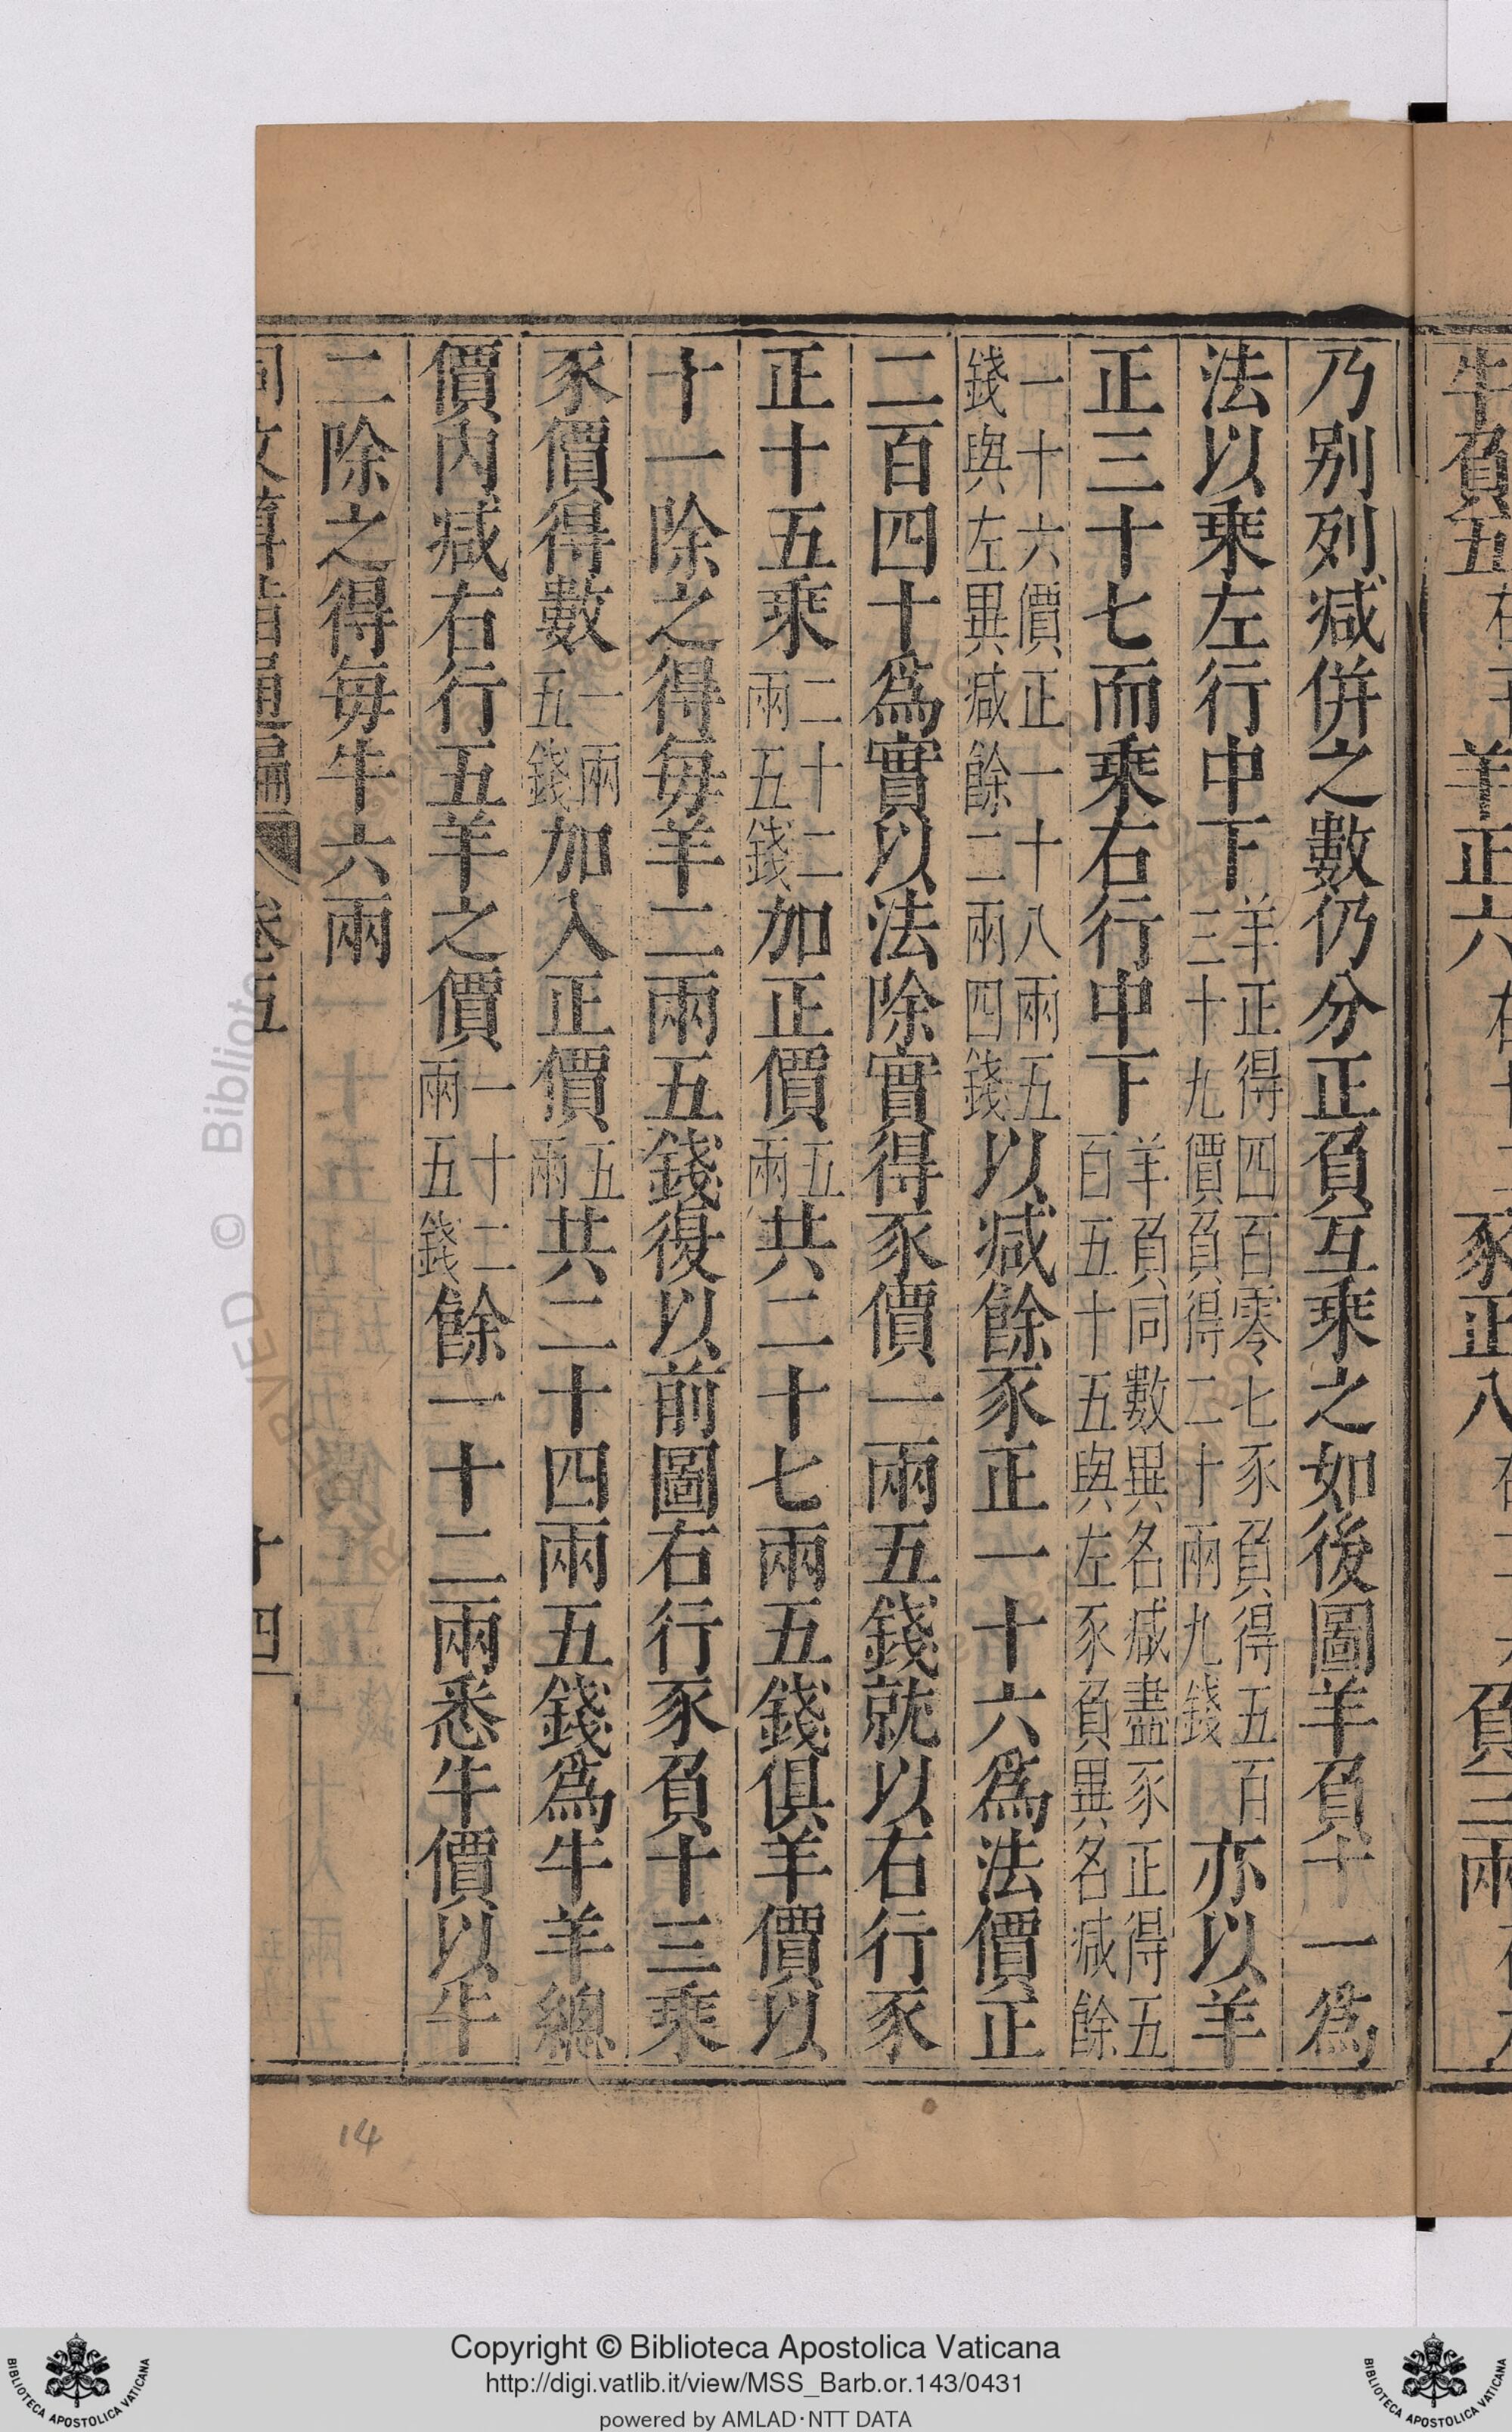 牛負五
羊正六
豕正八
負三兩
乃别列减併之數仍分正負互乘之如後圖羊負十一爲
法以乘左行中下羊正得四百零七豕負得五百
三十九價負得二十兩九錢亦以羊
正三十七而乘右行中下羊負同數異名减盡豕正得五
百五十五與左豕負異名减餘
一十六價正一十八兩五
錢與左異减餘二兩四錢以减餘豕正一十六爲法價正
二百四十爲實以法除實得豕價一兩五錢就以右行豕
正十五乘二十二兩五錢加正價五兩共二十七兩五錢俱羊價以
十一除之得毎羊二兩五錢復以前圖右行豕負十三乘
豕價得數一兩五錢加入正價五兩共二十四兩五錢爲牛羊總
價內减右行五羊之價一十二兩五錢餘一十二兩悉牛價以牛
二除之得毎牛六兩
同文算指通編 卷五 十四
14
© Bibliote
Copyright © Biblioteca Apostolica Vaticana
http://digi.vatlib.it/view/MSS_Barb.or.143/0431
powered by AMLAD·NTT DATA
BIBLIOTECA APOSTOLICA VATICANA
BIBLIOTECA APOSTOLICA VATICANA